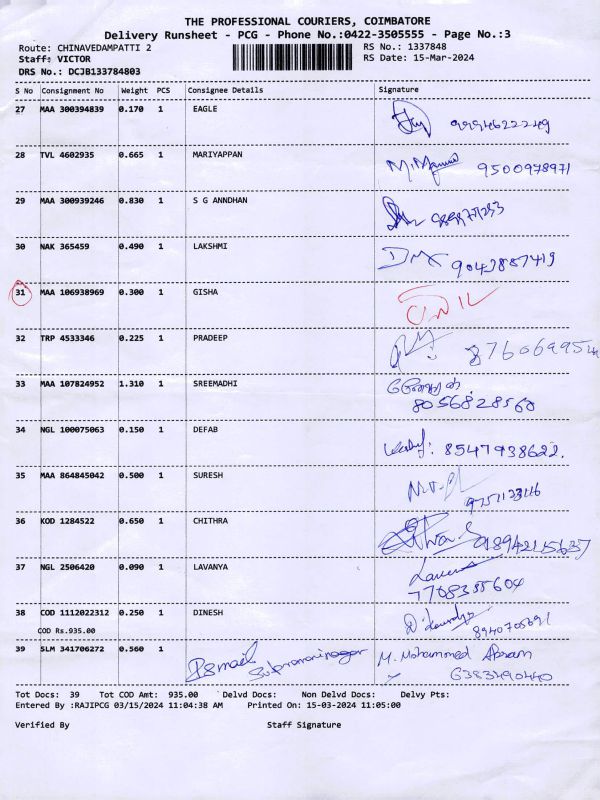 THE PROFESSIONAL COURIERS, COIMBATORE
Delivery Runsheet - PCG - Phone No.:0422-3505555 - Page No.:3
Route: CHINAVEDAMPATTI 2 RS No.: 1337848
Staff: VICTOR RS Date: 15-Mar-2024
DRS No.: DCJB133784803
S No Consignment No Weight PCS Consignee Details Signature
27 MAA 300394839 0.170 1 EAGLE
28 TVL 4602935 0.665 1 MARIYAPPAN 9500978971
29 MAA 300939246 0.830 1 S G ANNDHAN
30 NAK 365459 0.490 1 LAKSHMI 9043887419
31 MAA 106938969 0.300 1 GISHA
32 TRP 4533346 0.225 1 PRADEEP
33 MAA 107824952 1.310 1 SREEMADHI
8056828560
34 NGL 100075063 0.150 1 DEFAB 8547938622.
35 MAA 864845042 0.500 1 SURESH
36 KOD 1284522 0.650 1 CHITHRA
37 NGL 2506420 0.090 1 LAVANYA
7708355604
38 COD 1112022312 0.250 1 DINESH
COD Rs.935.00 8940705691
39 SLM 341706272 0.560 1 Ismail M. Mohammed
6383490440
Tot Docs: 39 Tot COD Amt: 935.00 Delvd Docs: Non Delvd Docs: Delvy Pts:
Entered By :RAJIPCG 03/15/2024 11:04:38 AM Printed On: 15-03-2024 11:05:00
Verified By Staff Signature